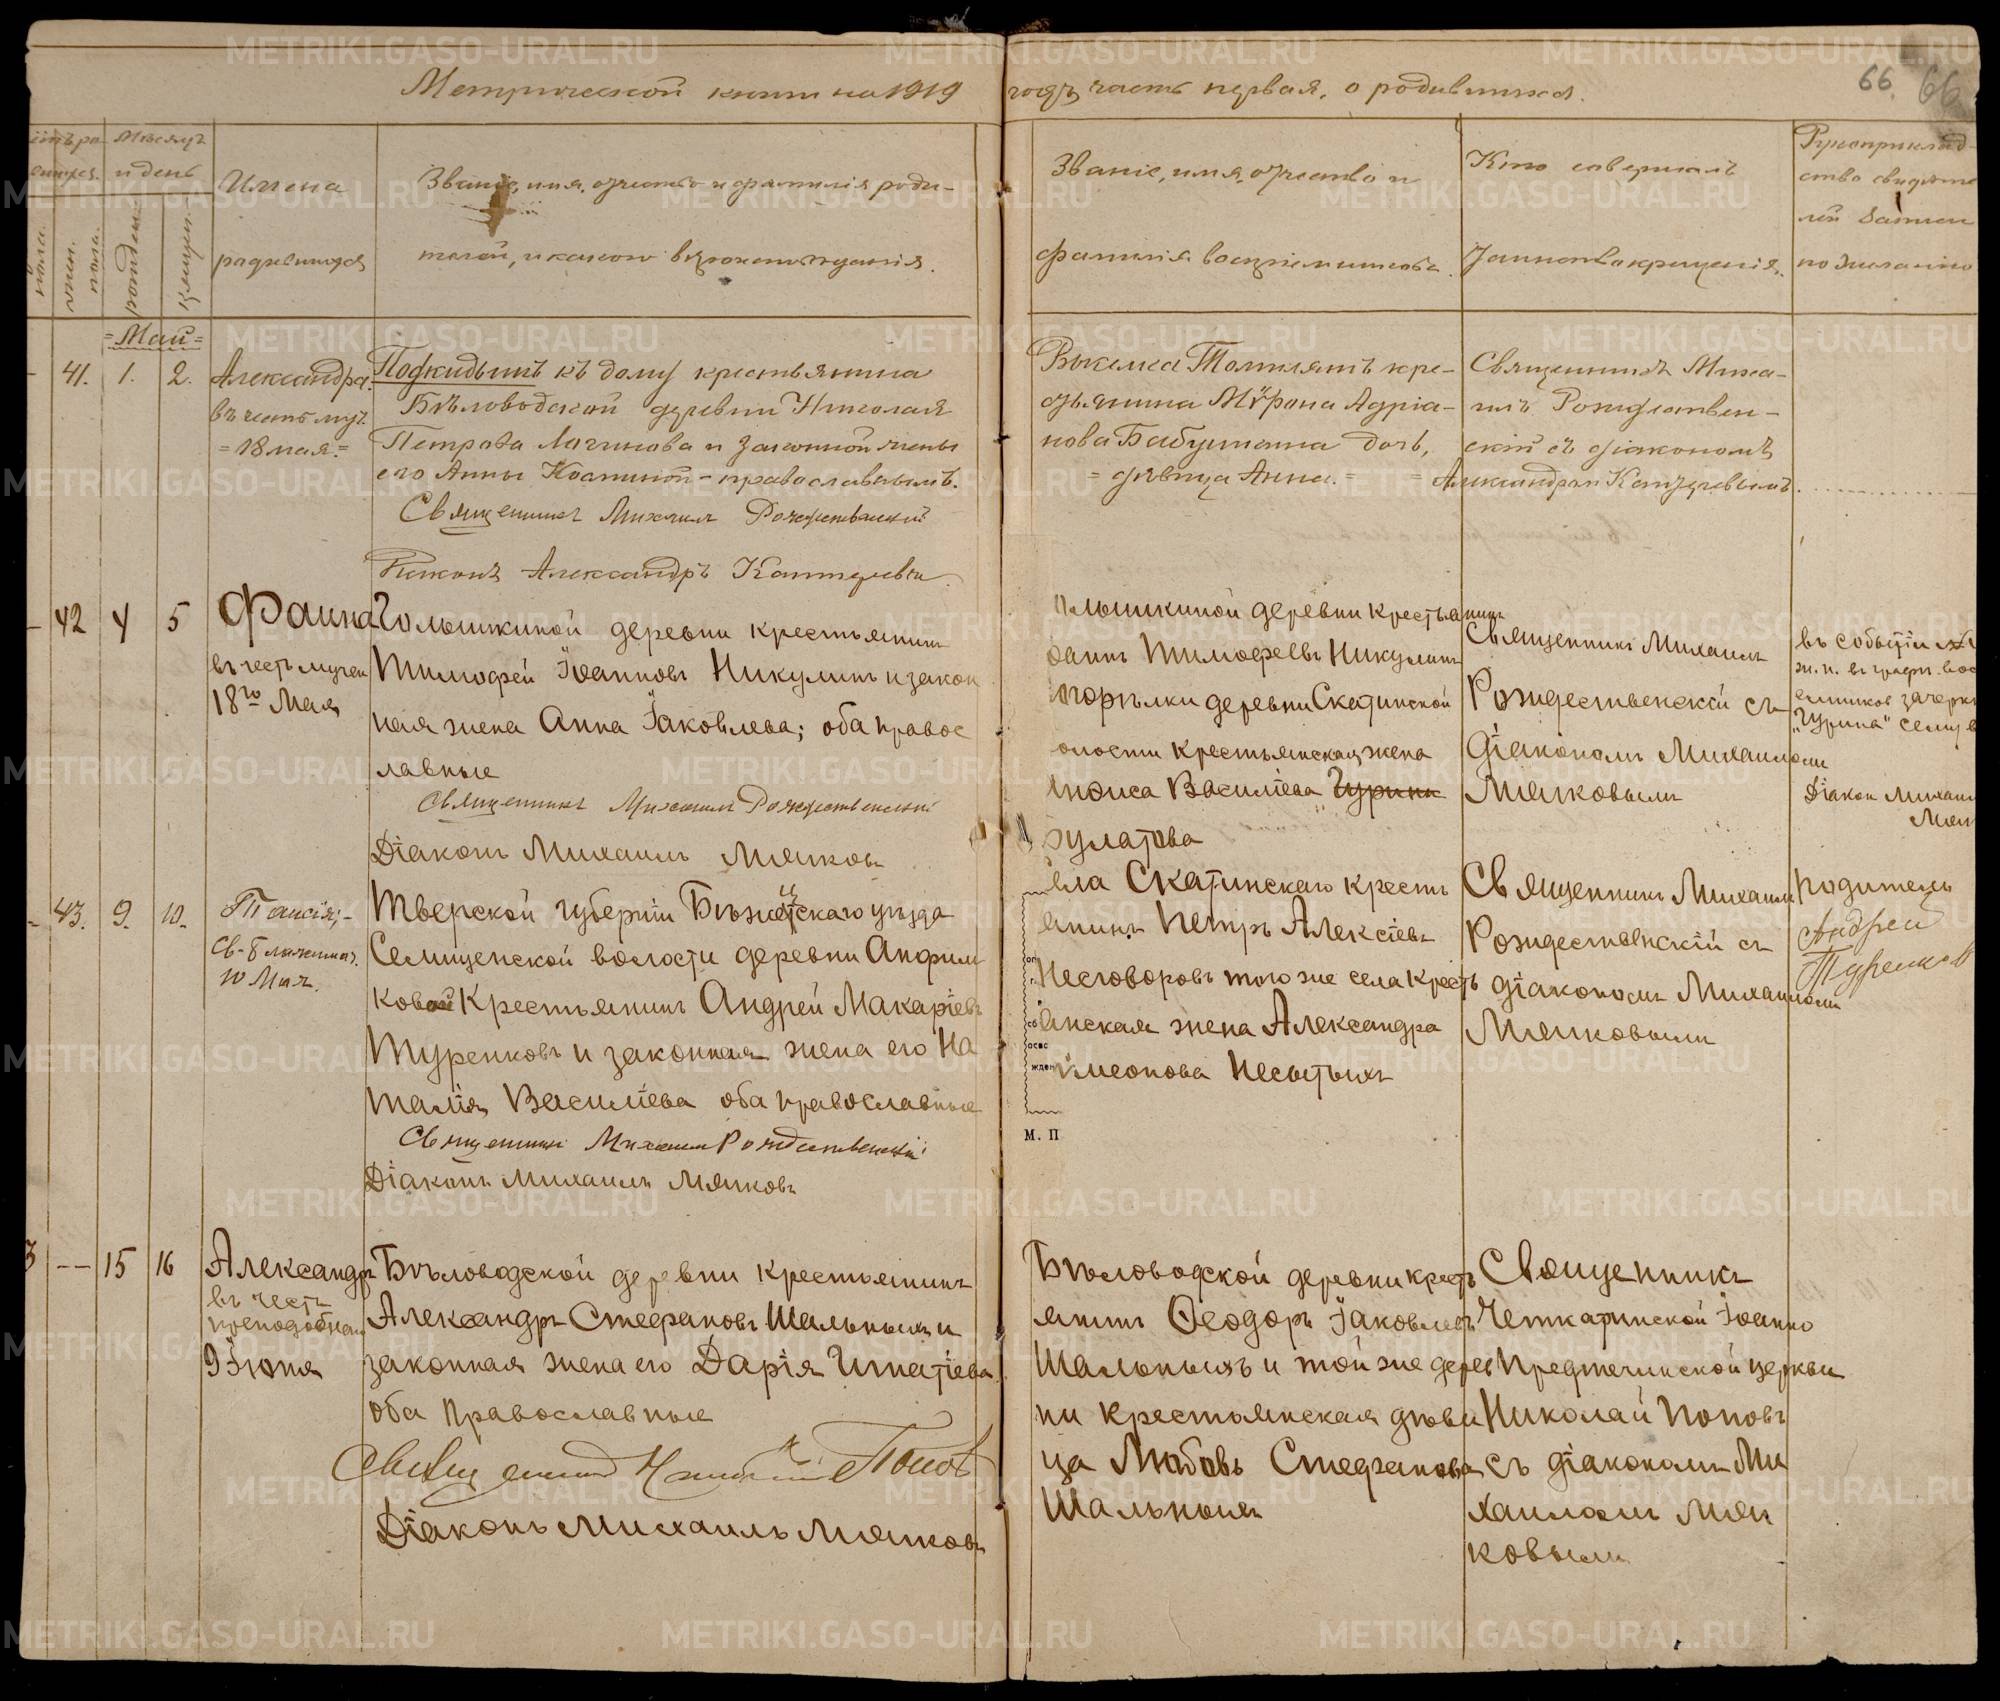 Метрической книги на 1919
годъ часть первая, о родившихся.
66. 66
Мѣсяцъ
и день
Имена
родившихся
Званіе, имя, отчество и фамилія роди-
телей, и какого вѣроисповѣданія.
Званіе, имя, отчество и
фамилія воспріемниковъ.
Кто совершалъ
Таинство крещенія.
Рукоприклад-
ство свидѣте
лей записи
по желанію
=Май=
41. 1. 2. Александра.
въ честь муч.
=18 мая.=
Подкидышъ къ дому крестьянина
Бѣловодской деревни Николая
Петрова Логинова и законной жены
его Анны - православнымъ.
Священникъ Михаилъ Рождественскій
Діаконъ Александръ
крестьянина Мѵрона Адріа-
нова Бабушкина дочь,
= дѣвица Анна. =
Священникъ Миха-
илъ Рождествен-
скій съ діакономъ
= Александромъ
42 4 5 Фаина
въ честь мучен
18го Мая
деревни крестьянинъ
Тимофей Іоанновъ Никулинъ и закон
ная жена Анна Іаковлева; оба правос
лавные
Священникъ Михаилъ Рождественскій
Діаконъ Михаилъ Мялковъ
деревни крестьянинъ
Тимофеевъ Никулинъ
деревни Скатинской
олости крестьянская жена
Василіева
улатова
Священникъ Михаилъ
Рождественскій съ
діакономъ Михаиломъ
Мялковымъ
въ событіи
Діакон Михаил
Мял
43. 9. 10. Таисія;-
Св-Блаженная.
10 Мая.
Тверской губерніи Бѣжецкаго уѣзда
Селищенской волости деревни Анфим
ковой Крестьянинъ Андрей Макаріевъ
Туренковъ и законная жена его На
талія Василіева оба православные
Священникъ Михаилъ Рождественскій
Діаконъ Михаилъ Мялковъ
ела Скатинскаго кресть
янинъ Петръ Алексіевъ
Несговоровъ того же села кресть
янская жена Александра
имеонова Несытыхъ
М. П
Священникъ Михаилъ
Рождественскій съ
діакономъ Михаиломъ
Мялковымъ
родитель
Андрей
Туренков
3 -- 15 16 Александръ
въ честь
преподобнаго
9 Іюня
Бѣловодской деревни крестьянинъ
Александръ Стефановъ Шальныхъ и
законная жена его Дарія Игнатіева
оба Православные
Священникъ Николай Поповъ
Діаконъ Михаилъ Мялковъ
Бѣловодской деревни кресть
янинъ Ѳеодоръ Іаковлевъ
Шальныхъ и той же дерев
ни крестьянская дѣви
ца Любовь Стефанова
Шальныхъ
Священникъ
Четкаринской Іоанно
Предтечинской церкви
Николай Поповъ
съ діакономъ Ми
хаиломъ Мял
ковымъ